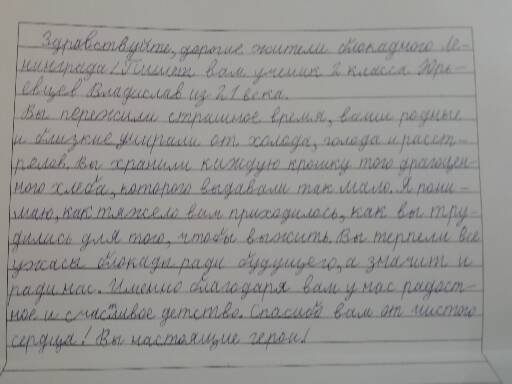 Здравствуйте, дорогие жители блокадного Ле-
нинграда! Пишет вам ученик 2 класса Юрь-
евцев Владислав из 21 века.
Вы пережили страшное время, ваши родные
и близкие умирали от холода, голода и расст-
релов. Вы хранили каждую крошку того драгоцен-
ного хлеба, которого выдавали так мало. Я пони-
маю, как тяжело вам приходилось, как вы тру-
дились для того, чтобы выжить. Вы терпели все
ужасы блокады ради будущего, а значит и
ради нас. Именно благодаря вам у нас радост-
ное и счастливое детство. Спасибо вам от чистого
сердца! Вы настоящие герои!